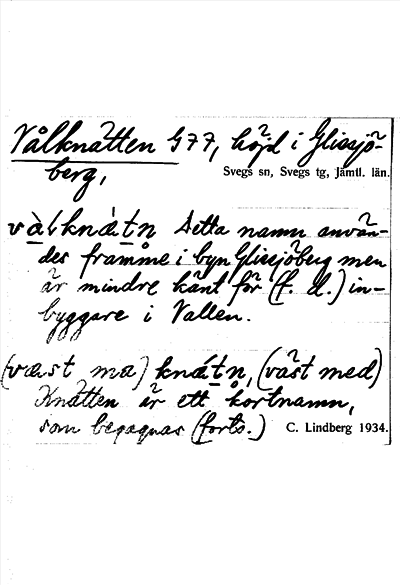 Vålknätten G77, höjd i Glissjö-
berg,
Svegs sn, Svegs tg, Jämtl. län.
vàlknǽtn Detta namn använ-
des framme i byn Glissjöberg men
är mindre känt för (f. d.) in-
byggare i Vallen.
(væst mæ) knǽtn, (väst med)
Knätten är ett kortnamn,
som begagnas (forts.)
C. Lindberg 1934.